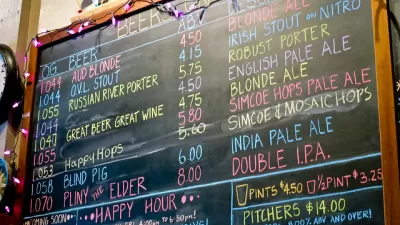 BEERS
OG BEER ABV
1.044 AUD BLONDE 4.50 BLONDE ALE
1.044 OVL STOUT 4.15 IRISH STOUT ON NITRO
1.055 RUSSIAN RIVER PORTER 5.75 ROBUST PORTER
4.50 ENGLISH PALE ALE
1.044 4.75 BLONDE ALE
1.047 GREAT BEER GREAT WINE 5.80 SIMCOE HOPS PALE ALE
1.055 5.60 SIMCOE & MOSAIC HOPS
1.053 HAPPY HOPS
1.058 BLIND PIG 6.00 INDIA PALE ALE
1.070 PLINY THE ELDER 8.00 DOUBLE I.P.A.
COMING SOON HAPPY HOUR
PINTS $4.50 ½ PINT $3.25
PITCHERS $14.00
ABV AND OVER!